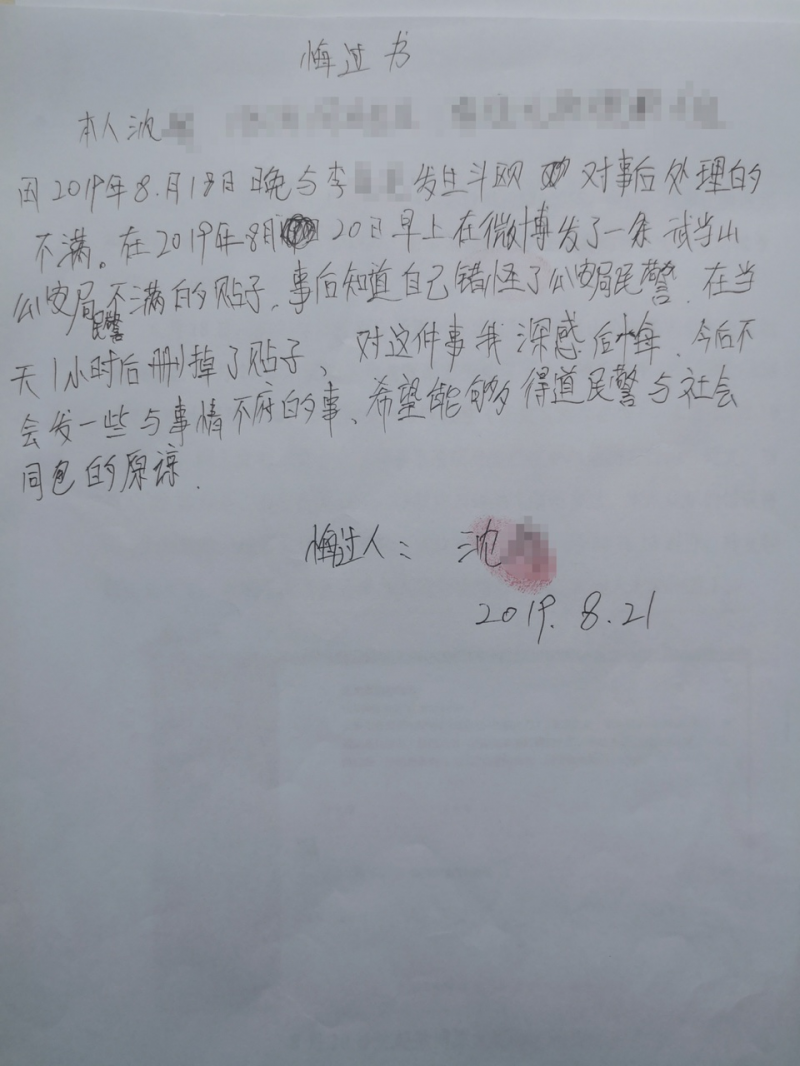 悔过书
本人沈
因2019年8月18日晚与李 发生斗殴 对事后处理的
不满。在2019年8月 20日早上在微博发了一条武当山
公安局民警不满的贴子,事后知道自己错怪了公安局民警.在当
天1小时后删掉了贴子、对这件事我深感后悔.今后不
会发一些与事情不府的事、希望能够得道民警与社会
同包的原谅.
悔过人: 沈
2019.8.21